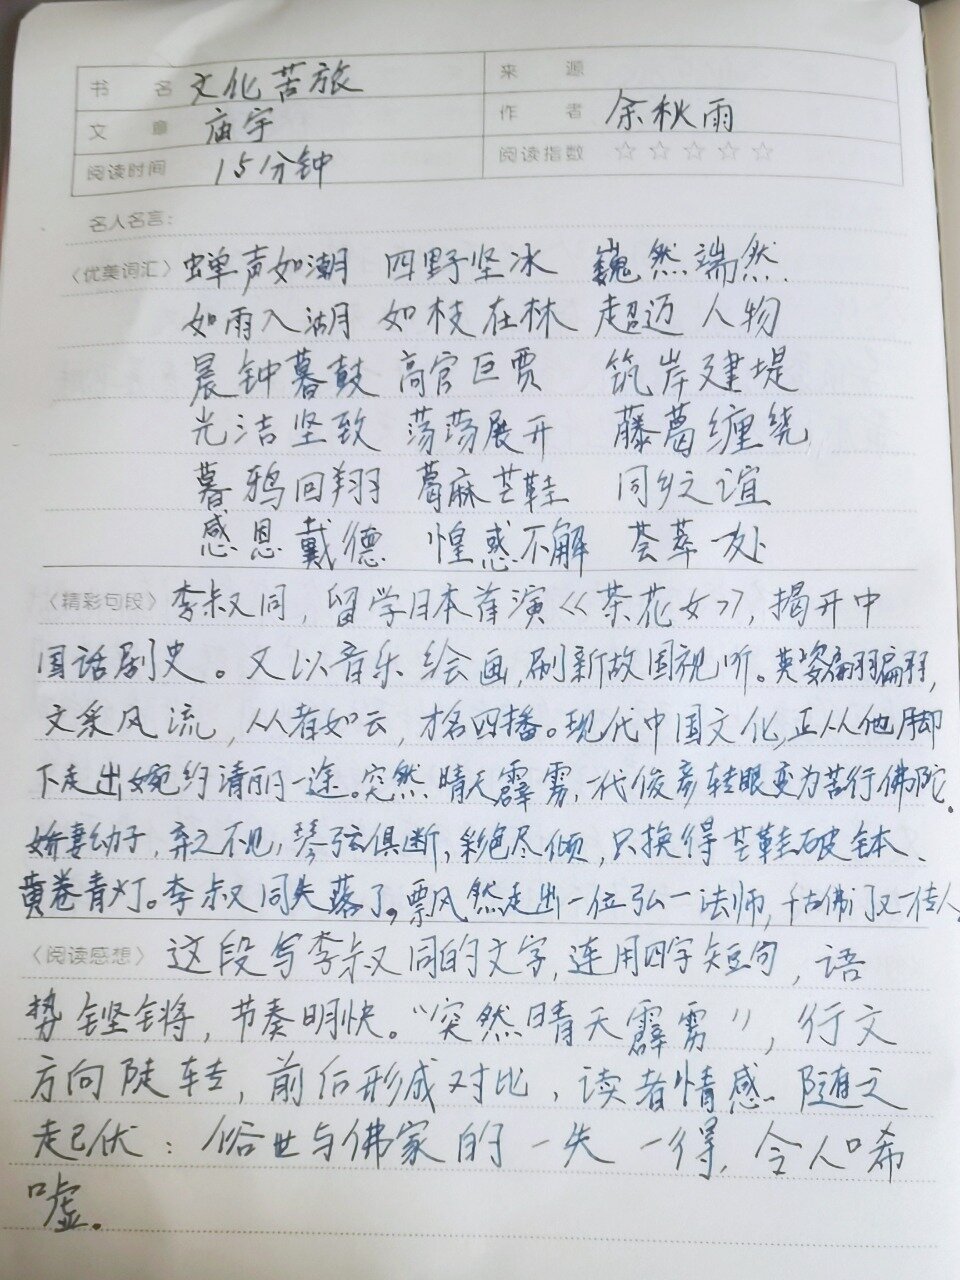 书 名 文化苦旅 来 源
文 章 庙宇 作 者 余秋雨
阅读时间 151分钟 阅读指数 ☆☆☆☆☆
名人名言：
〈优美词汇〉 蝉声如潮 四野坚冰 巍然端然
如雨入湖 如枝在林 超迈人物
晨钟暮鼓 高官巨贾 筑岸建堤
光洁坚致 荡荡展开 藤葛缠绕
暮鸦回翔 葛麻芒鞋 同乡之谊
感恩戴德 惶惑不解 荟萃一处
〈精彩句段〉 李叔同，留学日本首演《茶花女》，揭开中
国话剧史。又以音乐绘画，刷新故国视听。英姿翩翩，
文采风流，从者如云，才名四播。现代中国文化，正从他脚
下走出婉约清丽一途。突然晴天霹雳，一代俊彦转眼变为苦行佛陀。
娇妻幼子，弃之不见，琴弦俱断，彩色尽倾，只换得芒鞋破钵、
黄卷青灯。李叔同失落了，飘然走出一位弘一法师，千古佛门又一传人。
〈阅读感想〉 这段写李叔同的文字，连用四字短句，语
势铿锵，节奏明快。“突然晴天霹雳”，行文
方向陡转，前后形成对比，读者情感随之
起伏：俗世与佛家的一失一得，令人唏
嘘。